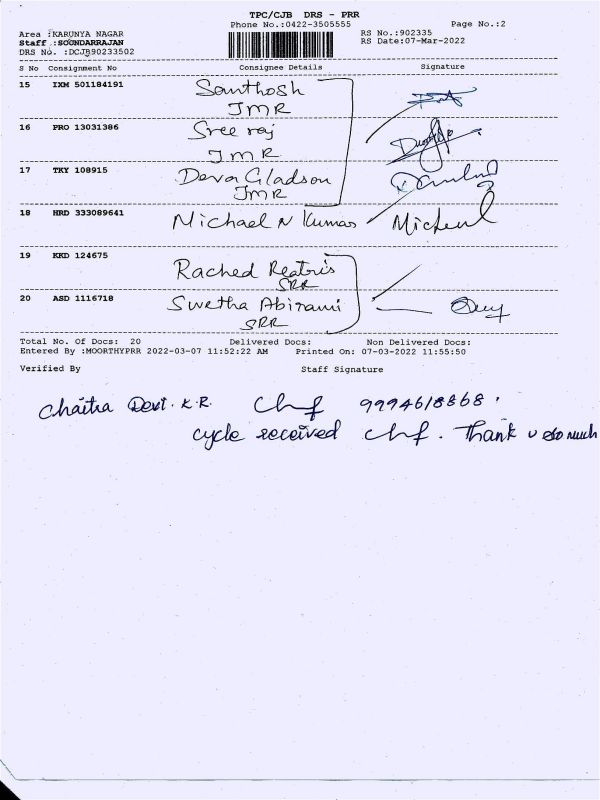 TPC/CJB DRS - PRR
Phone No.:0422-3505555
Page No.:2
Area :KARUNYA NAGAR
RS No.:902335
Staff :SOUNDARRAJAN
RS Date:07-Mar-2022
DRS No. :DCJB90233502
S No Consignment No Consignee Details Signature
15 IXM 501184191 Santhosh
JMR
16 PRO 13031386 Sree raj
JMR
17 TKY 108915 Deva Gladson
JMR
18 HRD 333089641 Michael N Kumar Micheal
19 KKD 124675 Rached Reatris
SRR
20 ASD 1116718 Swetha Abirami
SRR
Total No. Of Docs: 20 Delivered Docs: Non Delivered Docs:
Entered By :MOORTHYPRR 2022-03-07 11:52:22 AM Printed On: 07-03-2022 11:55:50
Verified By Staff Signature
Chaitra Devi. K.R. 9994618868.
cycle received . Thank u so much